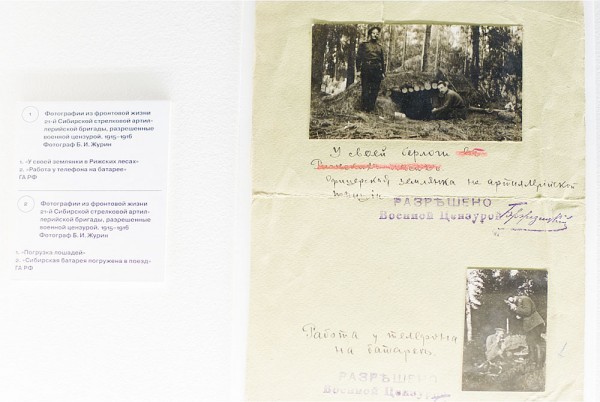 1
Фотографии из фронтовой жизни
21-й Сибирской стрелковой артил-
лерийской бригады, разрешенные
военной цензурой. 1915–1916
Фотограф Б. И. Журин
1. «У своей землянки в Рижских лесах»
2. «Работа у телефона на батарее»
ГА РФ
2
Фотографии из фронтовой жизни
21-й Сибирской стрелковой артил-
лерийской бригады, разрешенные
военной цензурой. 1915–1916
Фотограф Б. И. Журин
1. «Погрузка лошадей»
2. «Сибирская батарея погружена в поезд»
ГА РФ
У своей берлоги
Офицерская землянка на артиллерійской
позиціи
РАЗРѢШЕНО
Военной Цензурой
Работа у телефона
на батареѣ.
РАЗРѢШЕНО
Военной Цензурой